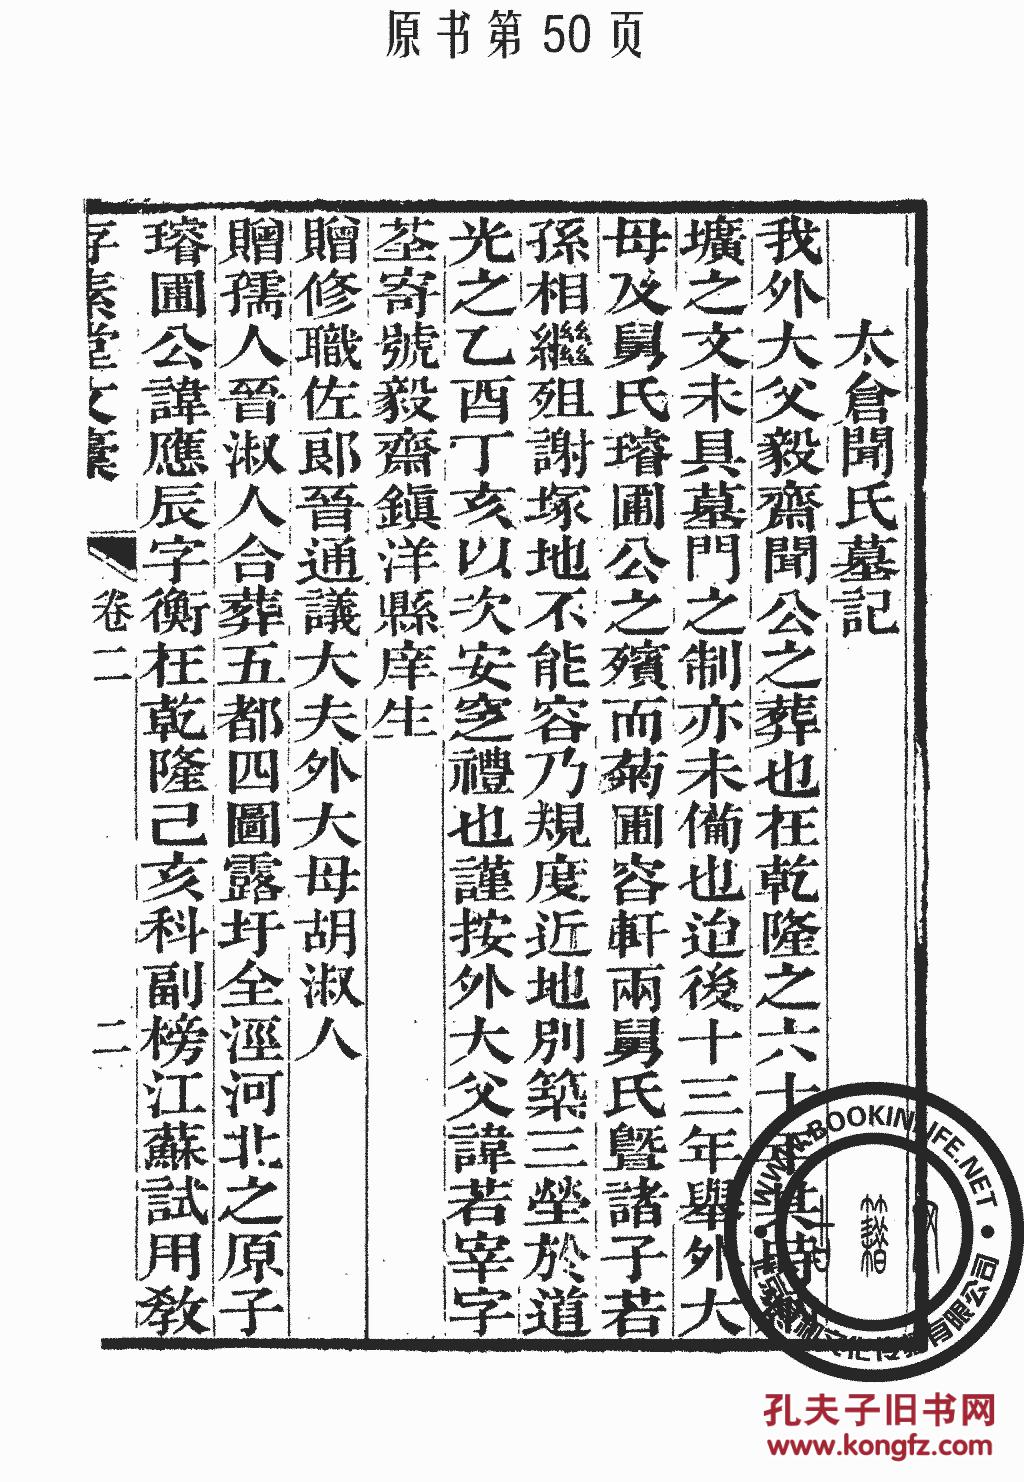 原书第50页
太倉聞氏墓記
我外大父毅齋聞公之葬也在乾隆之六十年其時
壙之文未具墓門之制亦未備也迨後十三年舉外大
母及舅氏璿圃公之殯而菊圃容軒兩舅氏曁諸子若
孫相繼殂謝塚地不能容乃規度近地別築三塋於道
光之乙酉丁亥以次安窆禮也謹按外大父諱若宰字
荃寄號毅齋鎭洋縣庠生
贈修職佐郎晉通議大夫外大母胡淑人
贈孺人晉淑人合葬五都四圖露圩全涇河北之原子
璿圃公諱應辰字衡在乾隆己亥科副榜江蘇試用敎
存素堂文稾
卷二
二
WWW.BOOKINLIFE.NET
有限公司
孔夫子旧书网
www.kongfz.com